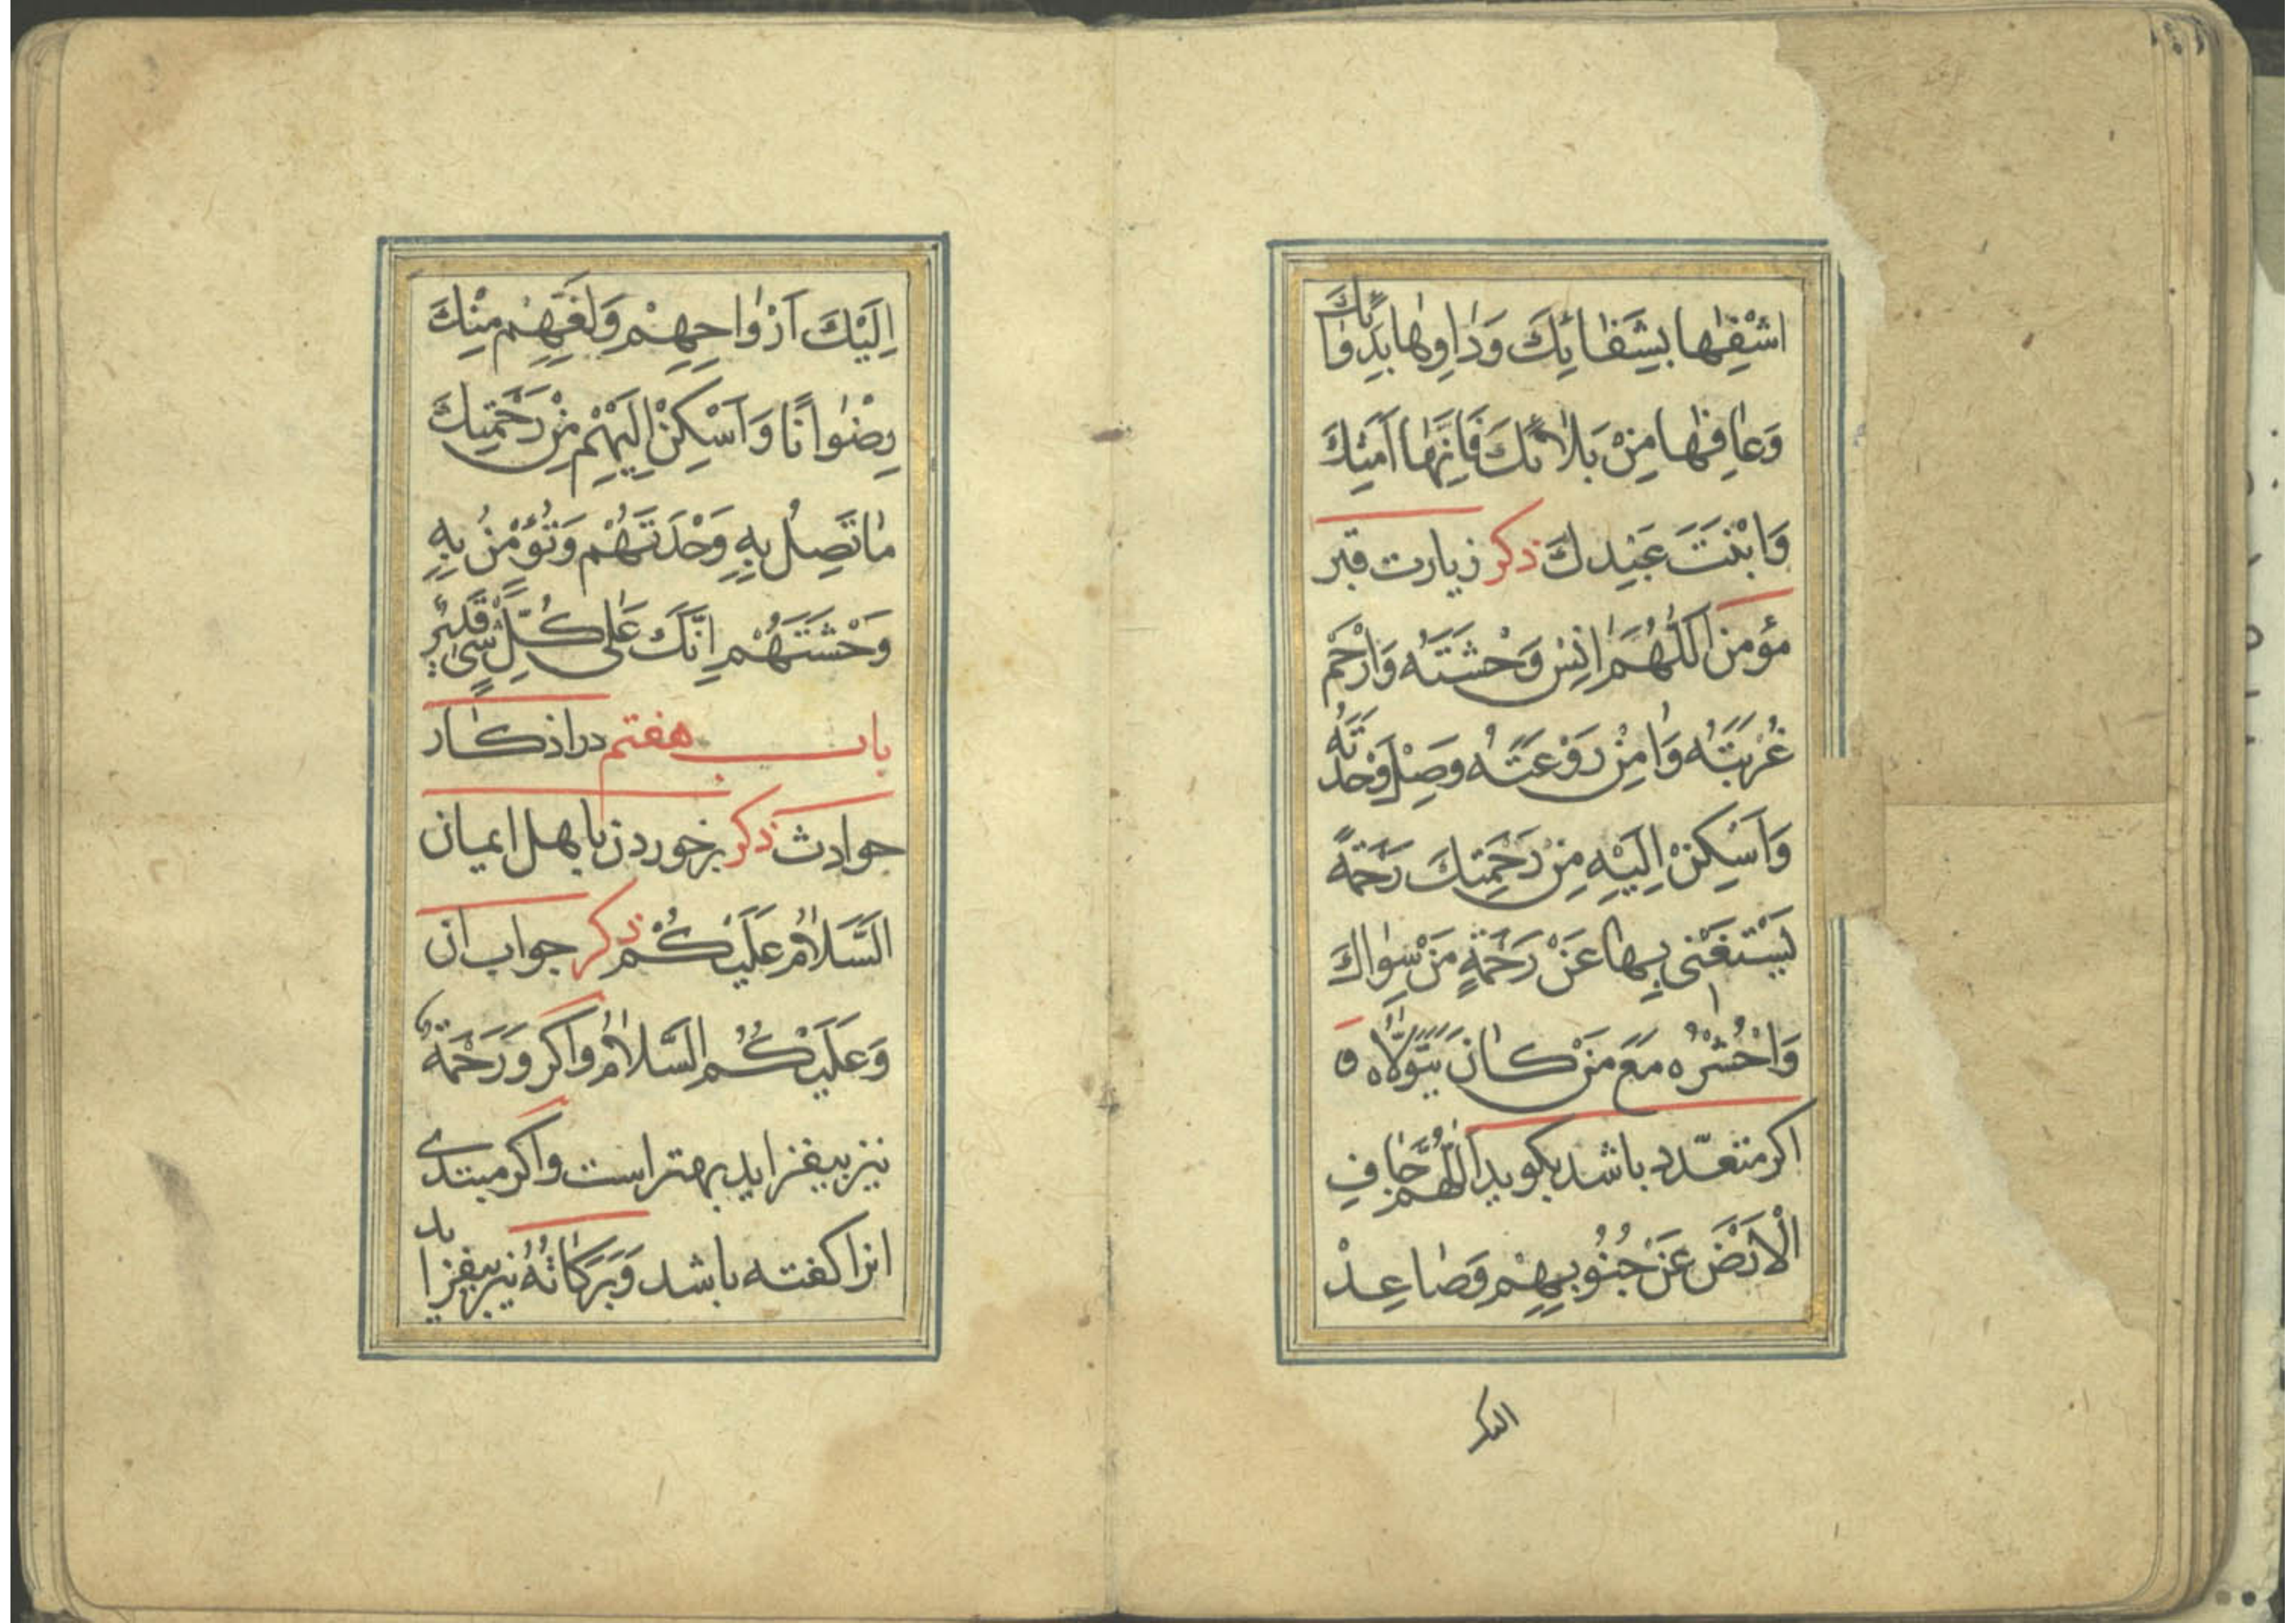 اشْفِهٰا بِشَفٰائِكَ وَدٰاوِهٰا بِدَوٰائِكَ
وَعٰافِهٰا مِنْ بَلٰائِكَ فَاِنَّهٰا اَمَتِكَ
وَابْنَتَ عَبْدِكَ ذکر زیارت قبر
مؤمن اَللّٰهُمَّ اٰنِسْ وَحْشَتَهُ وَارْحَمْ
غُرْبَتَهُ وَاٰمِنْ رَوْعَتَهُ وَصِلْ وَحْدَتَهُ
وَاَسْكِنْ اِلَيْهِ مِنْ رَحْمَتِكَ رَحْمَةً
يَسْتَغْنى بِهٰا عَنْ رَحْمَةِ مَنْ سِوٰاكَ
وَاحْشُرْهُ مَعَ مَنْ كٰانَ يَتَوَلّٰاهُ و
اکر متعدّد باشد بکوید اَللّٰهُمَّ جٰافِ
الْاَرْضَ عَنْ جُنُوبِهِمْ وَصٰاعِدْ
الیک
اِلَيْكَ اَرْوٰاحِهِمْ وَلَقِّهِمْ مِنْكَ
رِضْوٰانًا وَاَسْكِنْ اِلَيْهِمْ مِنْ رَحْمَتِكَ
مٰا تَصِلُ بِهِ وَحْدَتَهُمْ وَتُؤْمِنُ بِهِ
وَحْشَتَهُمْ اِنَّكَ عَلٰى كُلِّ شَىْءٍ قَدِيرٌ
باب هفتم در اذکار
حوادث ذکر برخوردن باهل ایمان
اَلسَّلٰامُ عَلَيْكُمْ ذکر جواب ان
وَعَلَيْكُمُ السَّلٰامُ واکر وَرَحْمَةُ
نیز بیفزاید بهتر است واکر مبتدی
انرا کفته باشد وَبَرَكٰاتُهُ نیز بیفزاید